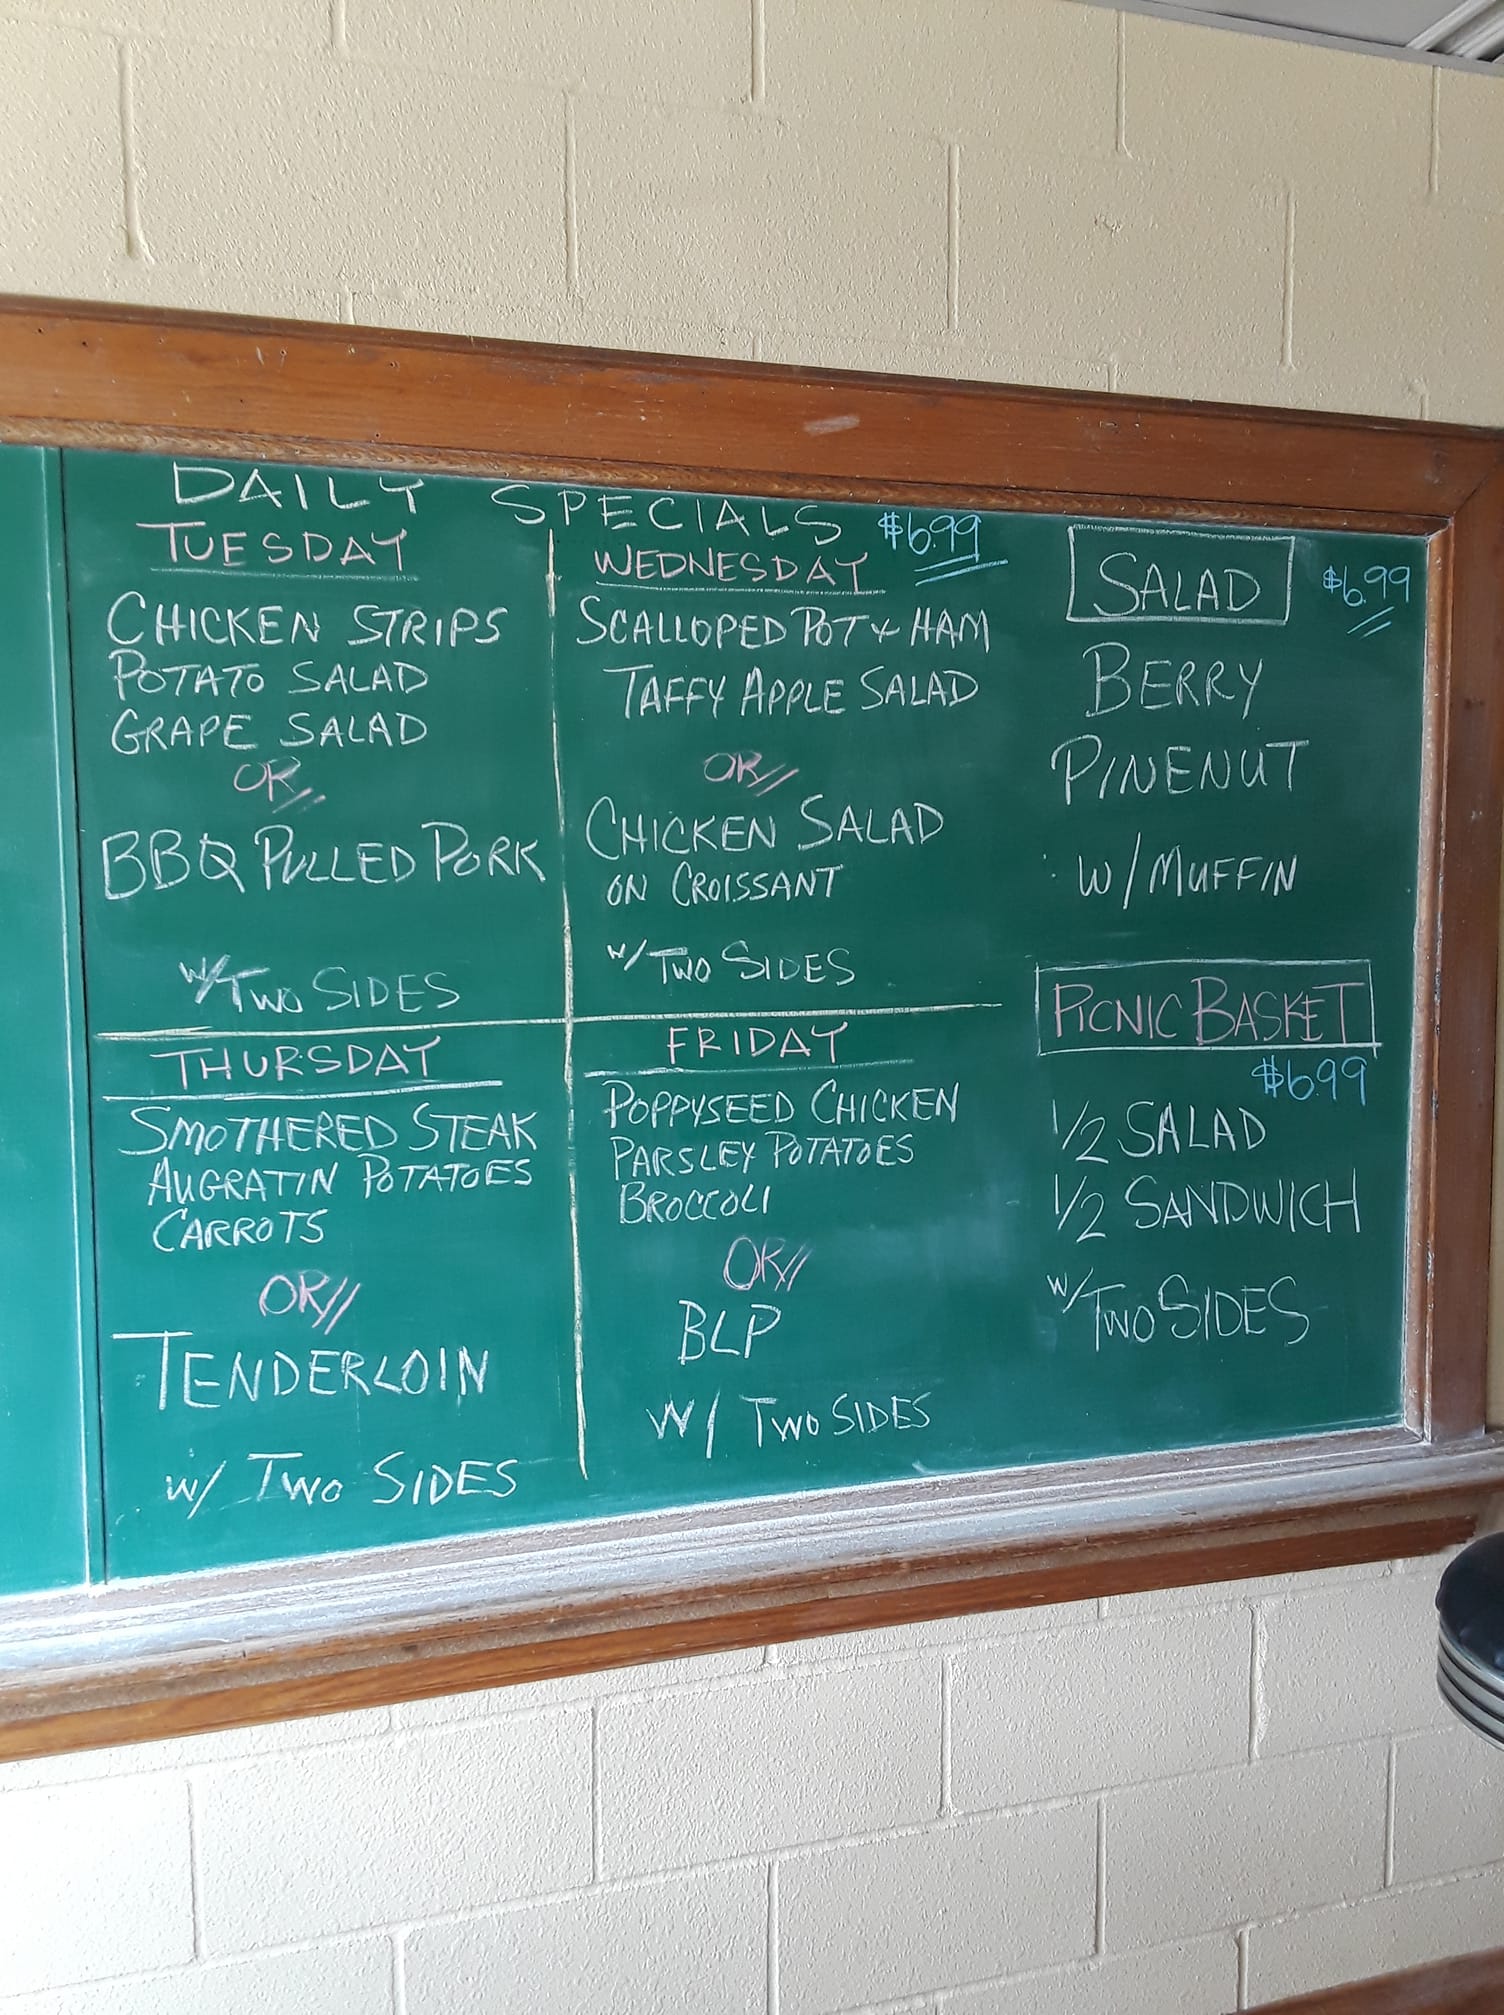 DAILY SPECIALS $6.99
TUESDAY
CHICKEN STRIPS
POTATO SALAD
GRAPE SALAD
OR
BBQ PULLED PORK
W/TWO SIDES
WEDNESDAY
SCALLOPED POT & HAM
TAFFY APPLE SALAD
OR
CHICKEN SALAD
ON CROISSANT
W/TWO SIDES
THURSDAY
SMOTHERED STEAK
AUGRATIN POTATOES
CARROTS
OR
TENDERLOIN
W/ TWO SIDES
FRIDAY
POPPYSEED CHICKEN
PARSLEY POTATOES
BROCCOLI
OR
BLP
W/ TWO SIDES
SALAD $6.99
BERRY
PINENUT
W/MUFFIN
PICNIC BASKET
$6.99
1/2 SALAD
1/2 SANDWICH
W/TWO SIDES